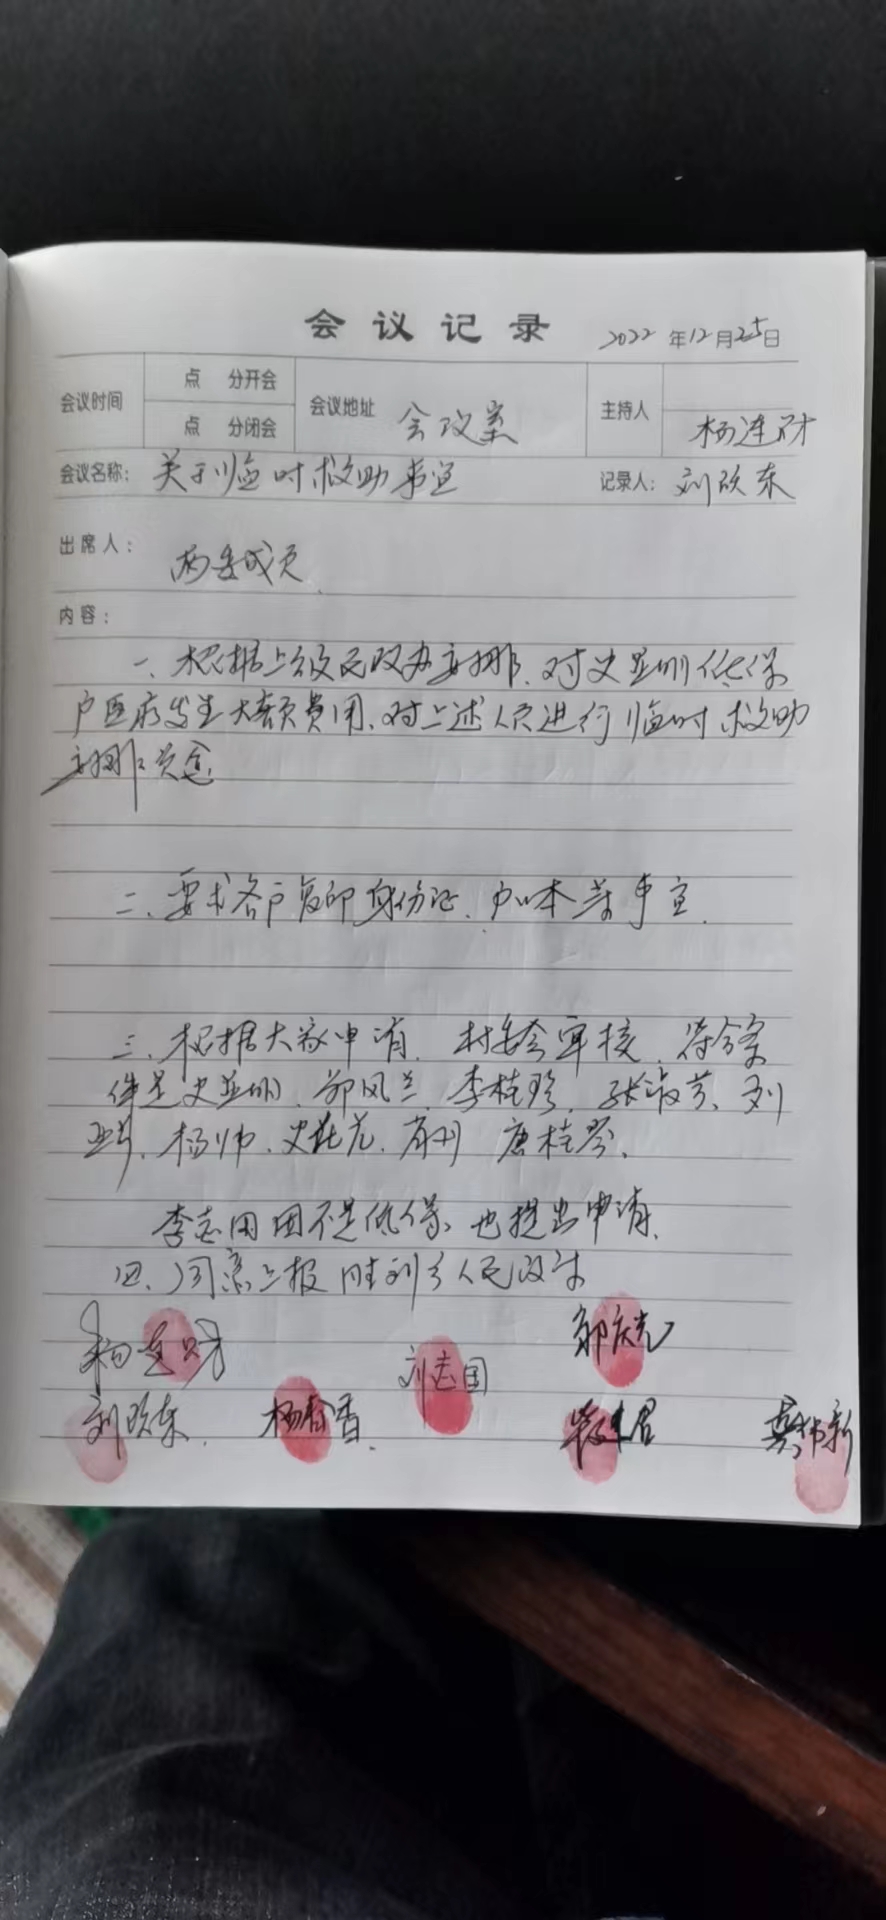 会议记录 2022年12月25日
会议时间 点 分开会 会议地址 会议室 主持人 杨连财
点 分闭会
会议名称: 关于临时救助事宜 记录人: 刘改东
出席人: 两委成员
内容:
一、根据上级民政办安排、对史亚娟低保
户医疗发生大额费用、对上述人员进行临时救助
安排资金
二、要求各户复印身份证、户口本等事宜.
三、根据大家申请、村委会审核、符合条
件是史亚娟、郭凤兰、李桂珍、张淑芳、刘
杨帅、史花 唐桂琴、
李志国因不是低保、也提出申请.
四、同意上报胜利乡人民政府
杨连财 刘志国 郭庆
刘改东. 杨春香.